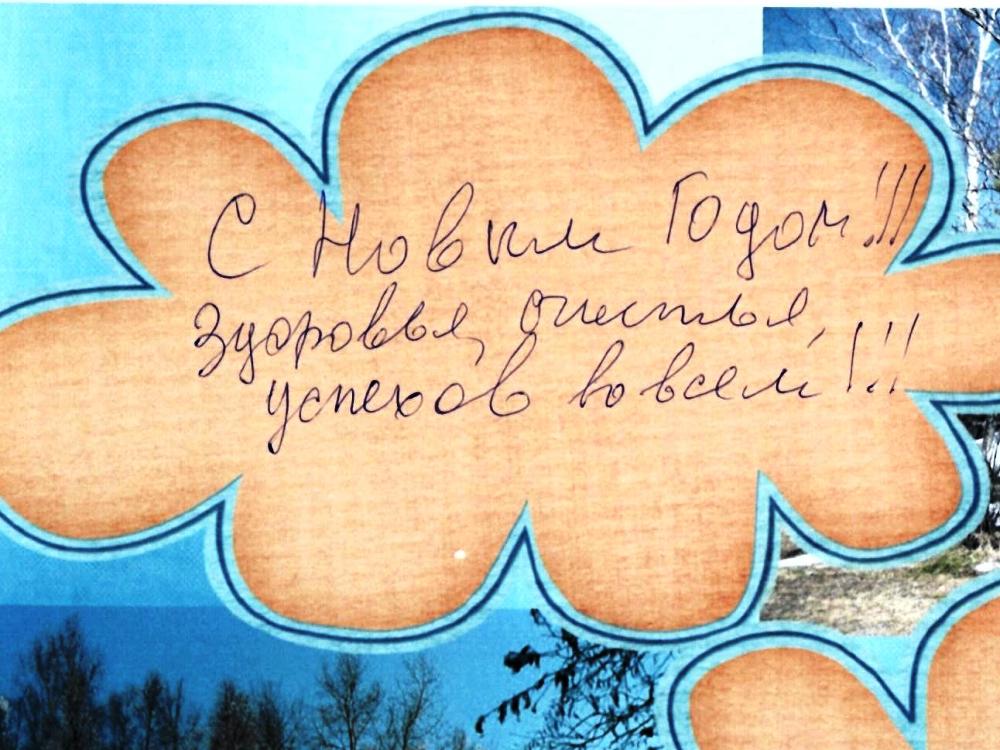 С Новым Годом!!!
Здоровья, счастья,
успехов во всем!!!